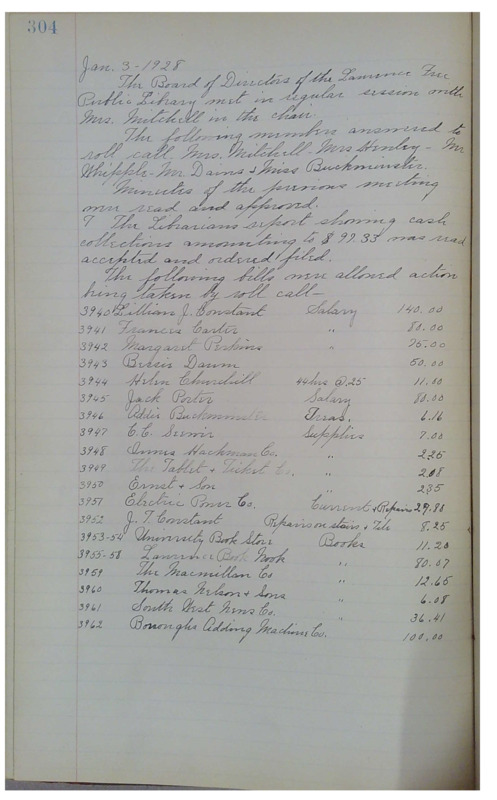 304
Jan. 3 - 1928
The Board of Directors of the Lawrence Free
Public Library met in regular session with
Mrs. Mitchell in the chair.
The following members answered to
roll call. Mrs. Mitchell - Mrs - Mr
Whipple - Mr. & Miss Buckminster.
Minutes of the previous meeting
were read and approved.
The Librarians report showing cash
collections amounting to $ 99.33 was read
accepted and ordered filed.
The following bills were allowed action
being taken by roll call -
3940 Lillian J. Constant Salary 140.00
3941 Frances Carter " 80.00
3942 Margaret Perkins " 75.00
3943 50.00
3944 Helen Churchill 44 hrs @ .25 11.00
3945 Jack Porter Salary 80.00
3946 Buckminster Treas. 6.16
3947 C.C. Supplies 7.00
3948 Hackman Co. " 2.25
3949 The Tablet & Ticket Co. " 2.08
3950 Ernst & Son " 2.35
3951 Electric Power Co. Current & Repair 29.80
3952 J. T. Constant Repairs on stairs & Tile 8.25
3953-54 University Book Store Books 11.20
3955-58 Lawrence Book Nook " 80.07
3959 The Macmillan Co " 12.65
3960 Thomas Nelson & Sons " 6.08
3961 South West News Co. " 36.41
3962 Burroughs Adding Machine Co. 100.00